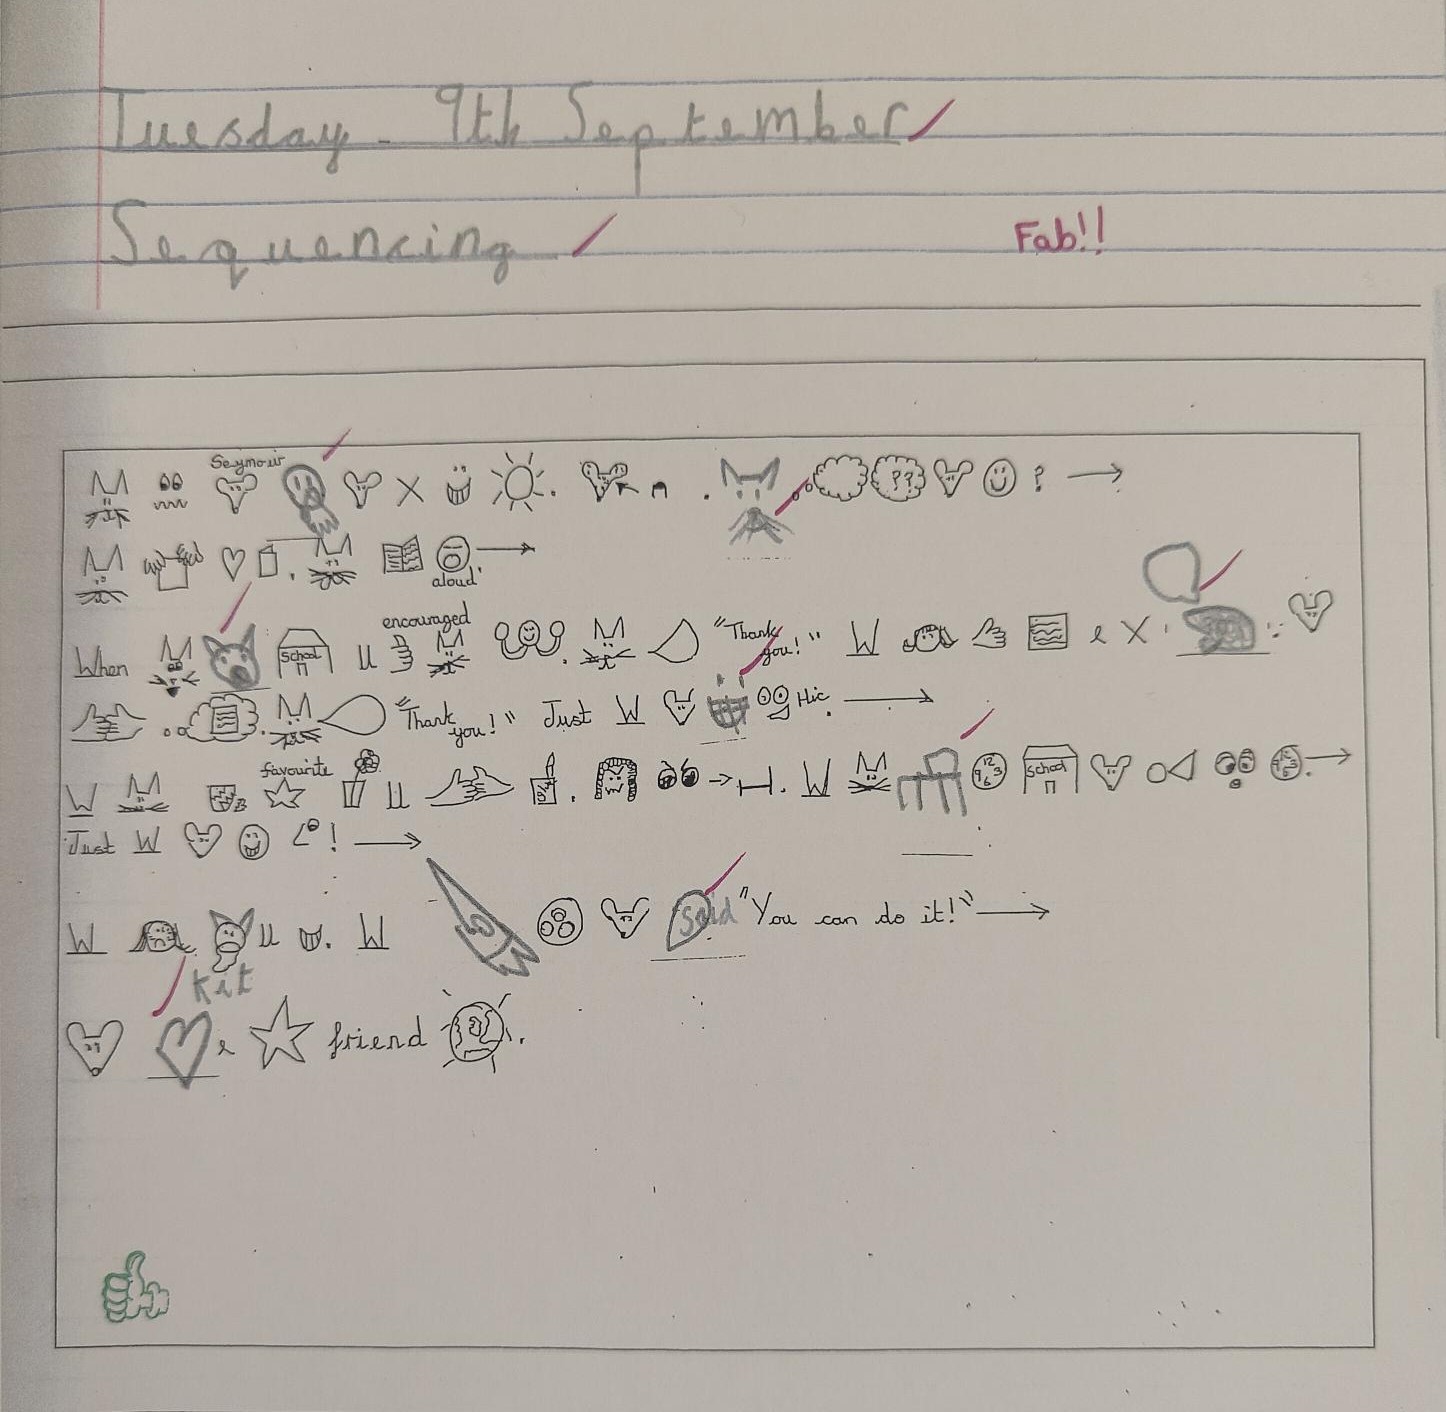 Tuesday - 9th September
Sequencing
Fab!!
Seymour
X . . ?? ?
. aloud.
When School u encouraged . "Thank you!" W e X.
. "Thank you!" Just W Hic.
W favourite u . . W 12 9 3 6 School
Just W !
W u . W said "You can do it!"
Kit
e friend .